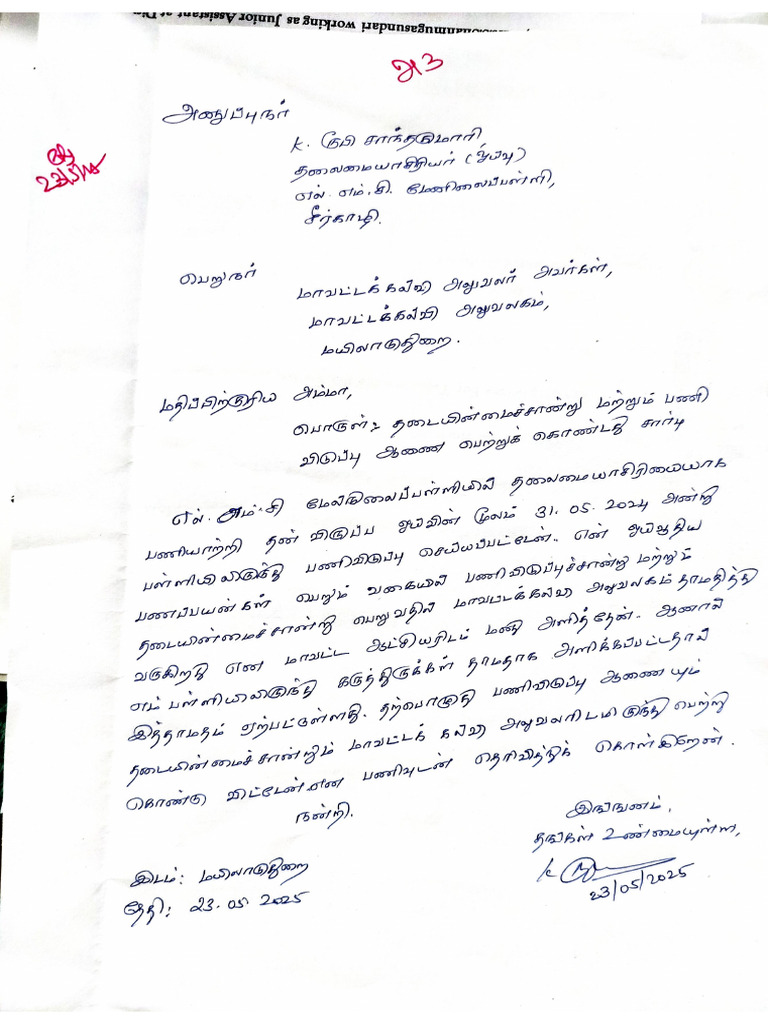 nmugasundari working as Junior Assistant at Di
அ3
23/5/25
அனுப்புநர்
K. ரூபி சாந்தகுமாரி
தலைமையாசிரியர் (ஓய்வு)
எல். எம். சி. மேணிலைப்பள்ளி,
சீர்காழி.
பெறுநர்
மாவட்டக்கல்வி அலுவலர் அவர்கள்,
மாவட்டக்கல்வி அலுவலகம்,
மயிலாடுதுறை.
மதிப்பிற்குரிய அம்மா,
பொருள் : தடையின்மைச்சான்று மற்றும் பணி
விடுப்பு ஆணை பெற்றுக் கொண்டது சார்பு
எல். எம். சி மேல்நிலைப்பள்ளியில் தலைமையாசிரியையாக
பணியாற்றி தன் விருப்ப ஓய்வின் மூலம் 31.05.2024 அன்று
பள்ளியிலிருந்து பணிவிடுப்பு செய்யப்பட்டேன். என் ஓய்வூதிய
பணப்பயன்கள் பெறும் வகையில் பணிவிடுப்புச்சான்று மற்றும்
தடையின்மைச் சான்று பெறுவதில் மாவட்டக்கல்வி அலுவலகம் தாமதித்து
வருகிறது என மாவட்ட ஆட்சியரிடம் மனு அளித்தேன். ஆனால்
எம் பள்ளியிலிருந்து கருத்துருக்கள் தாமதாக அளிக்கப்பட்டதால்
இத்தாமதம் ஏற்பட்டுள்ளது. தற்பொழுது பணிவிடுப்பு ஆணையும்
தடையின்மைச் சான்றும் மாவட்டக் கல்வி அலுவலரிடமிருந்து பெற்று
கொண்டு விட்டேன் என பணிவுடன் தெரிவித்துக் கொள்கிறேன்.
நன்றி.
இங்ஙனம்,
தங்கள் உண்மையுள்ள,
இடம் : மயிலாடுதுறை
K
23/05/2025
தேதி : 23.05.2025